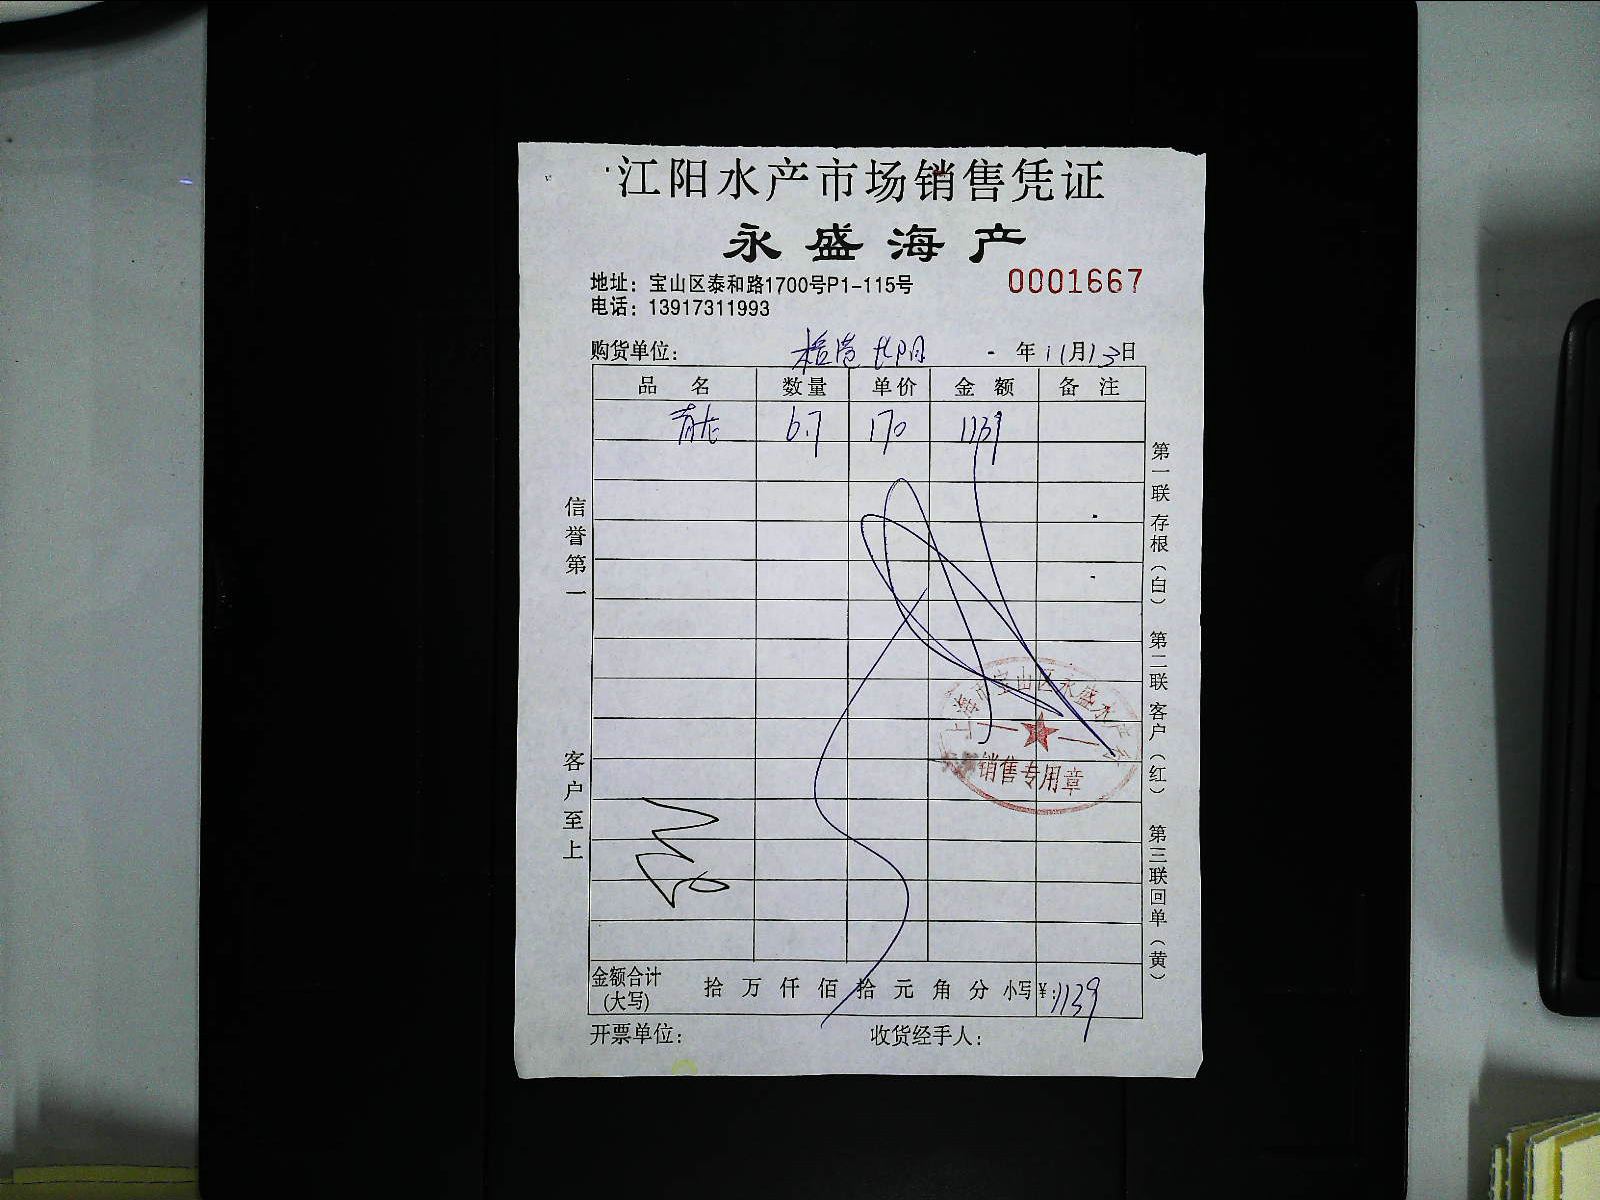 江阳水产市场销售凭证
永盛海产
地址：宝山区泰和路1700号P1-115号
0001667
电话：13917311993
购货单位： 年11月13日
品名 数量 单价 金额 备注
青龙 6.7 170 1139
信誉第一
客户至上
第一联存根（白）
第二联客户（红）
第三联回单（黄）
上海市宝山区永盛水产
销售专用章
金额合计（大写） 拾 万 仟 佰 拾 元 角 分 小写¥：1139
开票单位： 收货经手人：